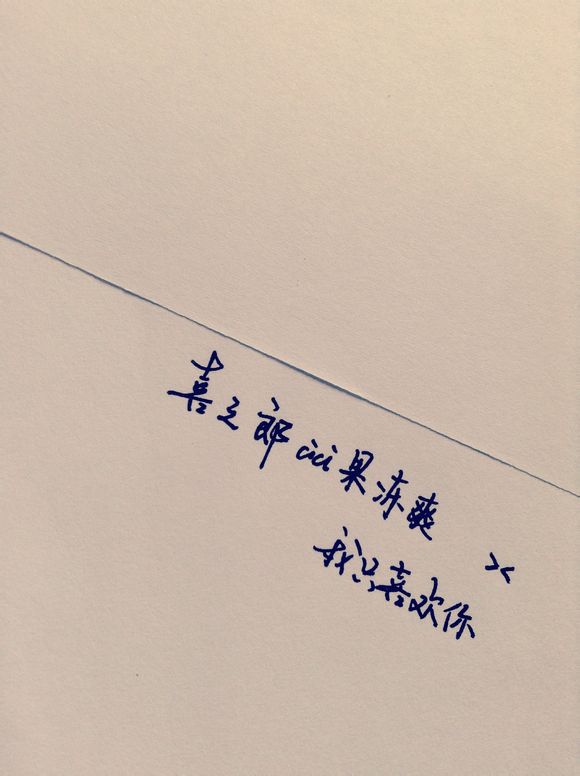 喜之郎cici果冻爽
我只喜欢你 ><